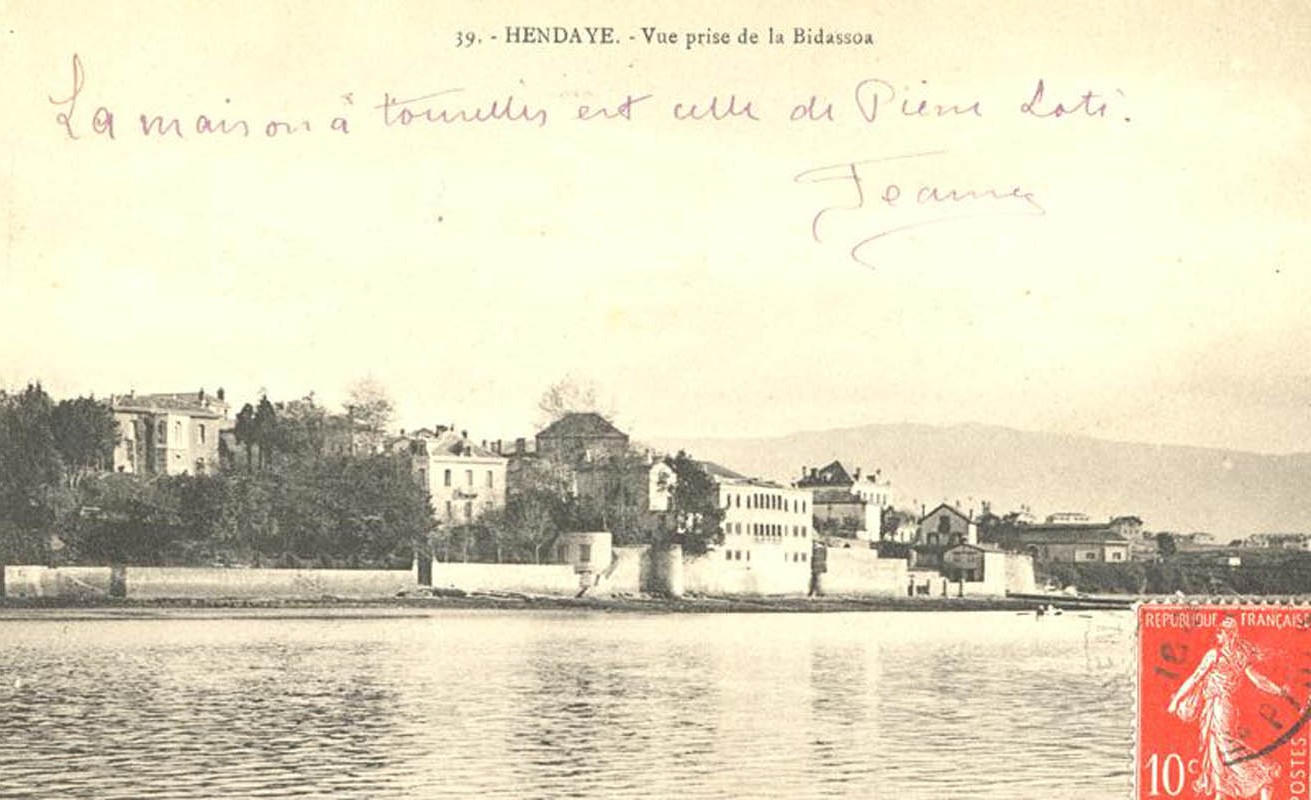 39. - HENDAYE. - Vue prise de la Bidassoa
La maison à tourelles est celle de Pierre Loti.
Jeanne
REPUBLIQUE FRANÇAISE
10c
POSTES